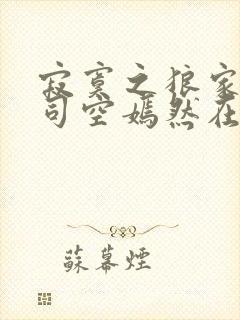 寂寞之狼家
司空嫣然在
蘇幕煙